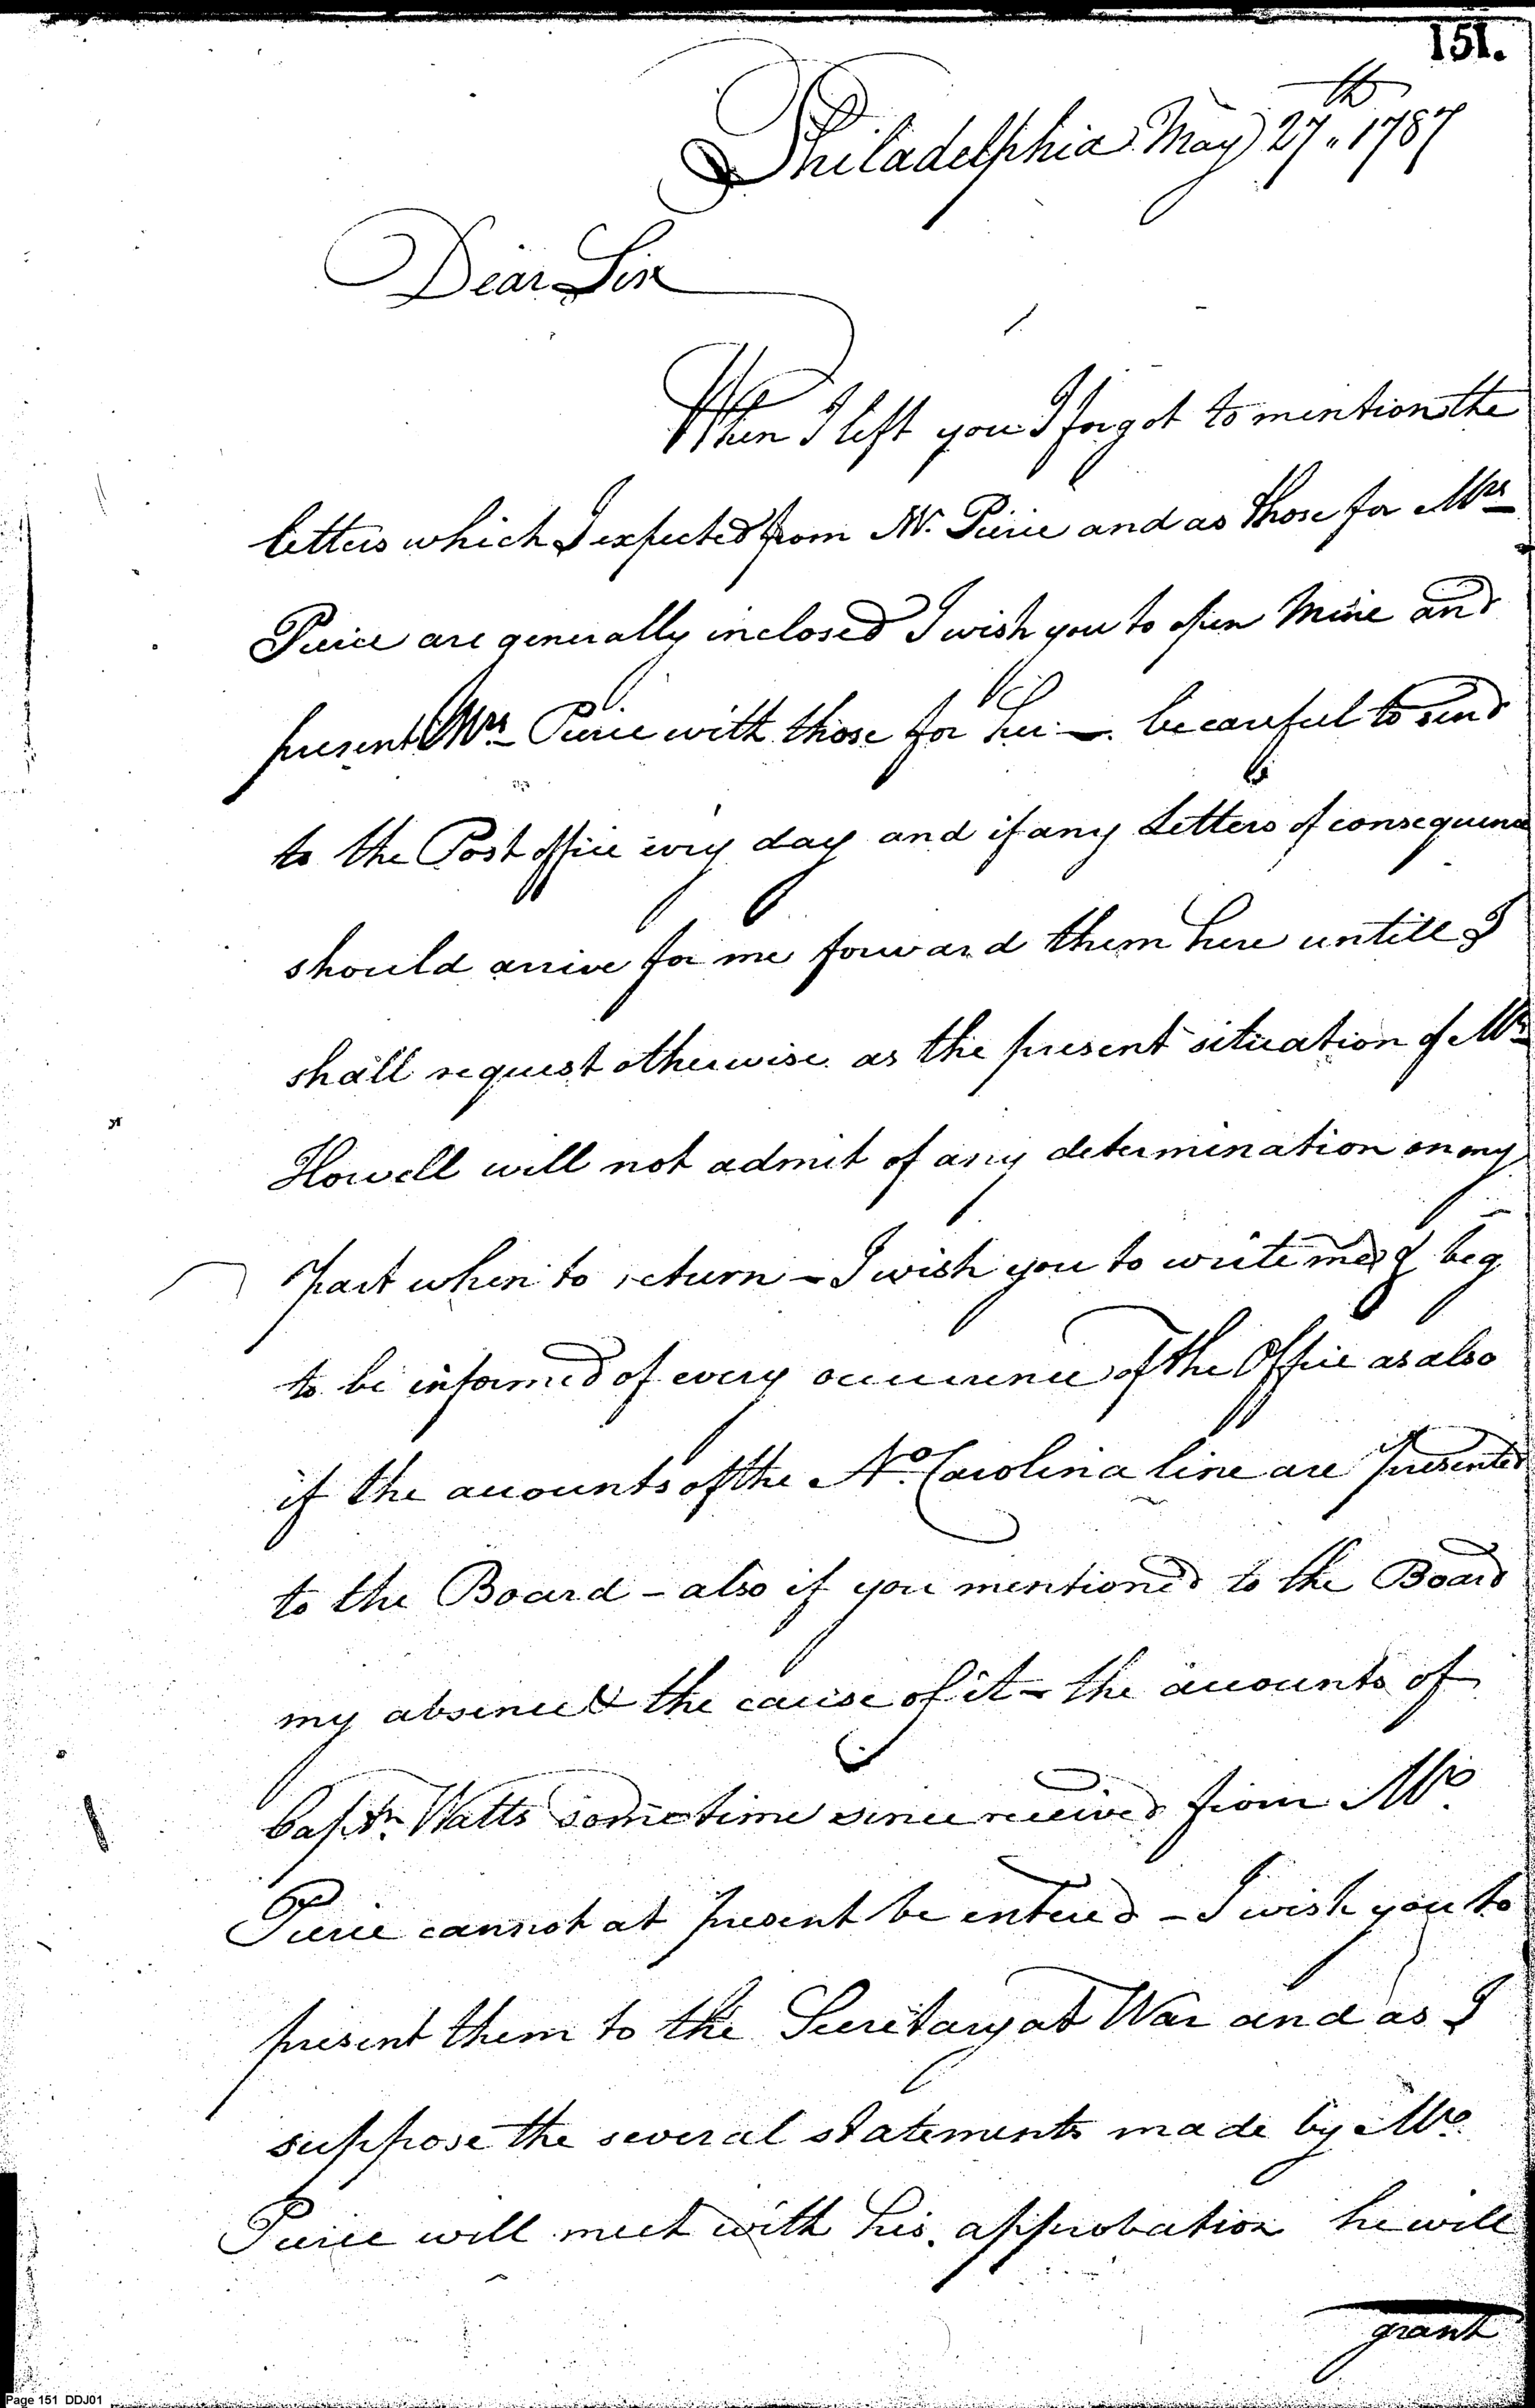 151.
Philadelphia May 27th. 1787
Dear Sir
When I left you I forgot to mention the
letters which I expected from Mr. Pierce and as those for Mrs
Pierce are generally inclosed I wish you to open Mine and
present Mrs Pierce with those for her —. be careful to send
to the Post office every day and if any Letters of consequence
should arrive for me forward them here untill I
shall request otherwise as the present situation of Mrs
Howell will not admit of any determination on my
part when to return – I wish you to write me & beg
to be informed of every occurrence of the Office as also
if the accounts of the No. Carolina line are presented
to the Board – also if you mentioned to the Board
my absence & the cause of it – the accounts of
Captn. Watts sometime since received from Mr.
Pierce cannot at present be entered – I wish you to
present them to the Secretary at War and as I
suppose the several statements made by Mr.
Pierce will meet with his approbation he will
grant
Page 151 DDJ01